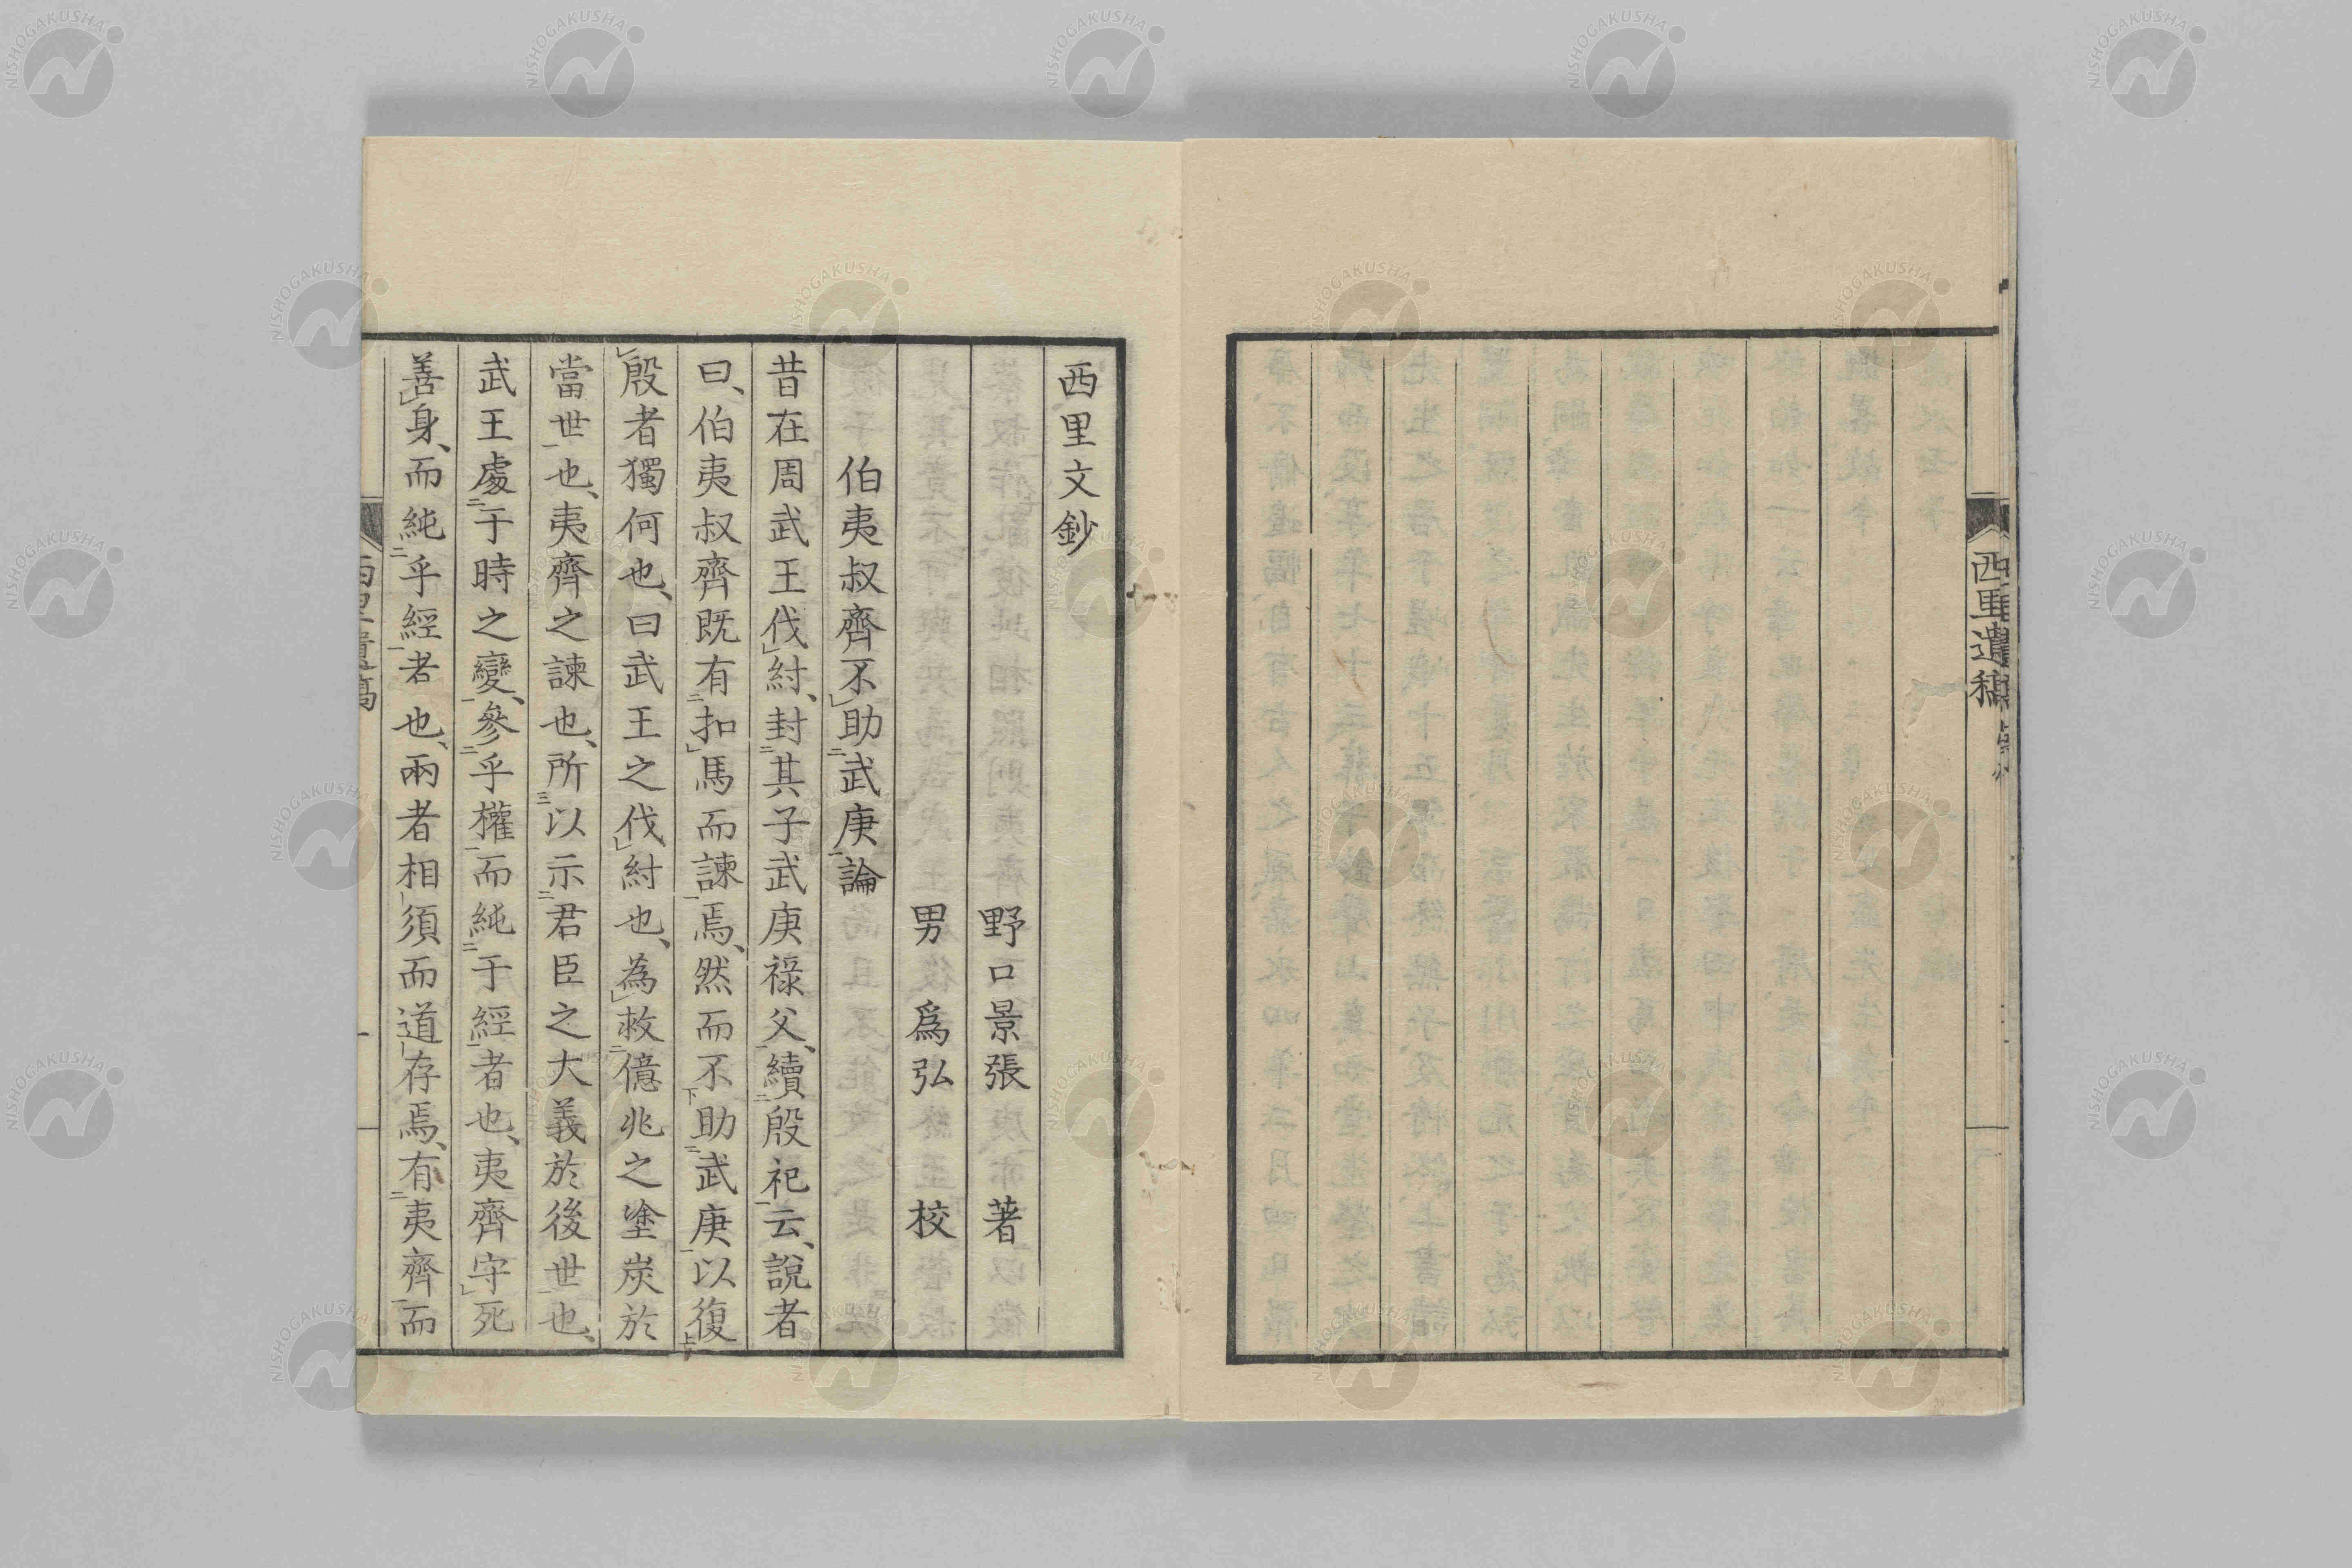 西里遺稿
西里文鈔
野口景張　著
男　爲弘　校
伯夷叔齊不助武庚論
昔在周武王伐紂、封其子武庚祿父、續殷祀云、説者
曰、伯夷叔齊既有扣馬而諫焉、然而不助武庚以復
殷者獨何也、曰武王之伐紂也、為救億兆之塗炭於
當世也、夷齊之諫也、所以示君臣之大義於後世也、
武王處于時之變、參乎權而純于經者也、夷齊守死
善身、而純乎經者也、兩者相須而道存焉、有夷齊而
西里遺稿
NISHOGAKUSHA